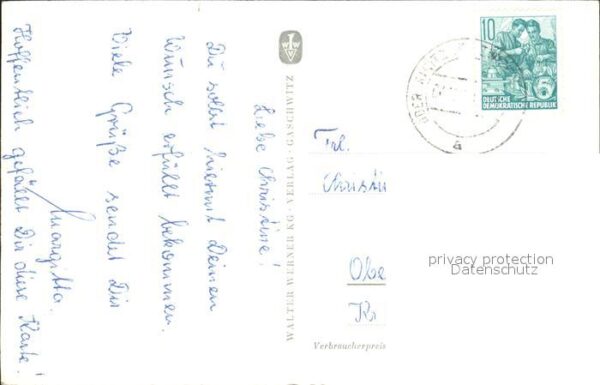 Liebe Christine!
Du sollst hiermit Deinen
Wunsch erfüllt bekommen.
Viele Grüße sendet Dir
Margitta.
Hoffentlich gefällt Dir diese Karte!
WALTER WERNER KG VERLAG · GASCHWITZ
Verbraucherpreis
10
DEUTSCHE
DEMOKRATISCHE REPUBLIK
5
a
Frl.
Christi
Obe
Kr
privacy protection
Datenschutz